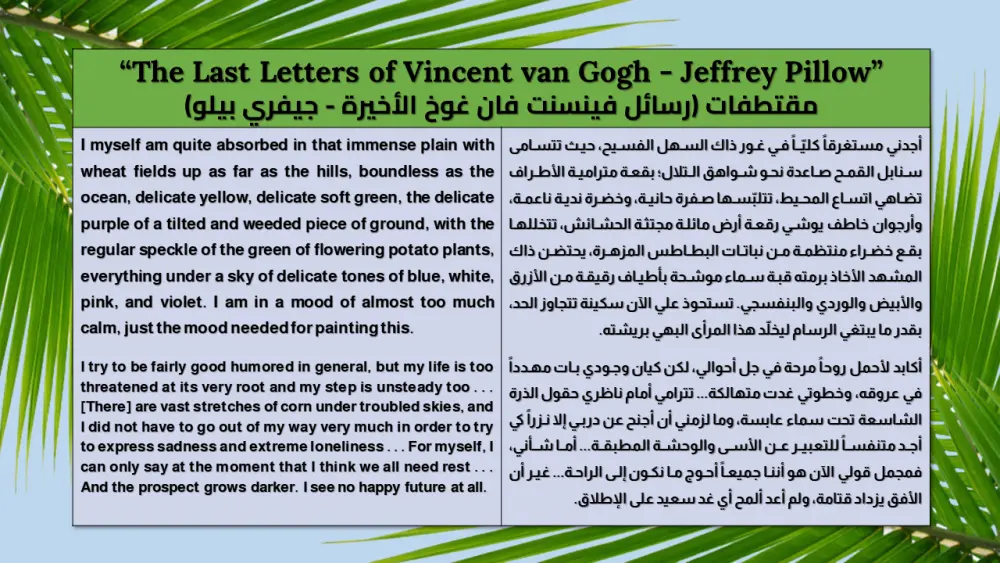 “The Last Letters of Vincent van Gogh - Jeffrey Pillow”
مقتطفات (رسائل فينسنت فان غوخ الأخيرة - جيفري بيلو)
I myself am quite absorbed in that immense plain with
wheat fields up as far as the hills, boundless as the
ocean, delicate yellow, delicate soft green, the delicate
purple of a tilted and weeded piece of ground, with the
regular speckle of the green of flowering potato plants,
everything under a sky of delicate tones of blue, white,
pink, and violet. I am in a mood of almost too much
calm, just the mood needed for painting this.
أجدني مستغرقاً كليّاً في غور ذاك السهل الفسيح، حيث تتسامى
سنابل القمح صاعدة نحو شواهق التلال؛ بقعة مترامية الأطراف
تضاهي اتساع المحيط، تتلبّسها صفرة حانية، وخضرة ندية ناعمة،
وأرجوان خاطف يوشي رقعة أرض مائلة مجتثة الحشائش، تتخللها
بقع خضراء منتظمة من نباتات البطاطس المزهرة، يحتضن ذاك
المشهد الأخاذ برمته قبة سماء موشحة بأطياف رقيقة من الأزرق
والأبيض والوردي والبنفسجي. تستحوذ علي الآن سكينة تتجاوز الحد،
بقدر ما يبتغي الرسام ليخلّد هذا المرأى البهي بريشته.
I try to be fairly good humored in general, but my life is too
threatened at its very root and my step is unsteady too . . .
[There] are vast stretches of corn under troubled skies, and
I did not have to go out of my way very much in order to try
to express sadness and extreme loneliness . . . For myself, I
can only say at the moment that I think we all need rest . . .
And the prospect grows darker. I see no happy future at all.
أكابد لأحمل روحاً مرحة في جل أحوالي، لكن كيان وجودي بات مهدداً
في عروقه، وخطوتي غدت متهالكة... تترامى أمام ناظري حقول الذرة
الشاسعة تحت سماء عابسة، وما لزمني أن أجنح عن دربي إلا نزراً كي
أجد متنفساً للتعبير عن الأسى والوحشة المطبقة... أما شأني،
فمجمل قولي الآن هو أننا جميعاً أحوج ما نكون إلى الراحة... غير أن
الأفق يزداد قتامة، ولم أعد ألمح أي غد سعيد على الإطلاق.